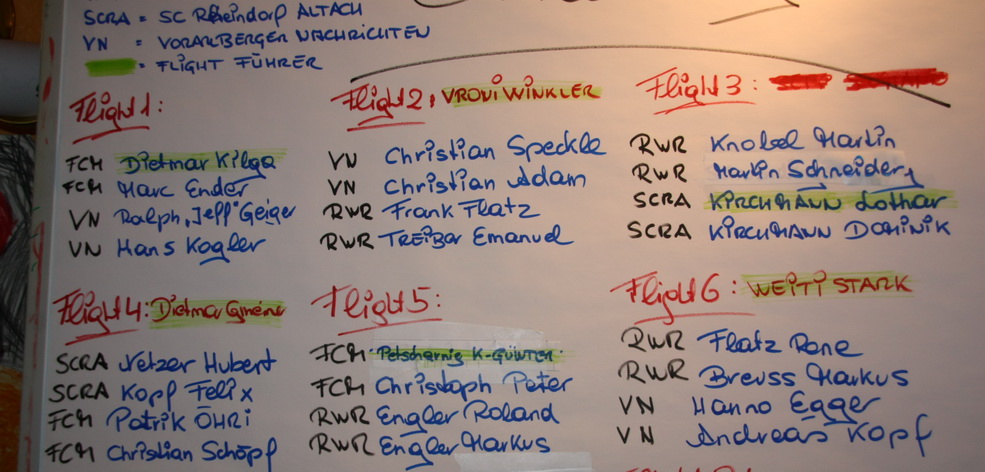 SCRA = SC Rheindorf ALTACH
VN = VORARLBERGER NACHRICHTEN
= FLIGHT FÜHRER
Flight 1:
FCM Dietmar Kilga
FCM Marc Ender
VN Ralph „Jeff" Geiger
VN Hans Kogler
Flight 2, VRONI WINKLER
VN Christian Speckle
VN Christian Adam
RWR Frank Flatz
RWR TREIBAR Emanuel
Flight 3:
RWR Knobel Martin
RWR Martin Schneider
SCRA KIRCHMANN Lothar
SCRA KIRCHMANN DOMINIK
Flight 4: Dietmar
SCRA Netzer Hubert
SCRA Kopf Felix
FCM Patrik ÖHRI
FCM Christian Schöpf
Flight 5:
FCM Petschernig K-GÜNTER
FCM Christoph Peter
RWR Engler Roland
RWR Engler Markus
Flight 6: WEITI STARK
RWR Flatz Rene
RWR Breuss Markus
VN Hanno Egger
VN Andreas Kopf